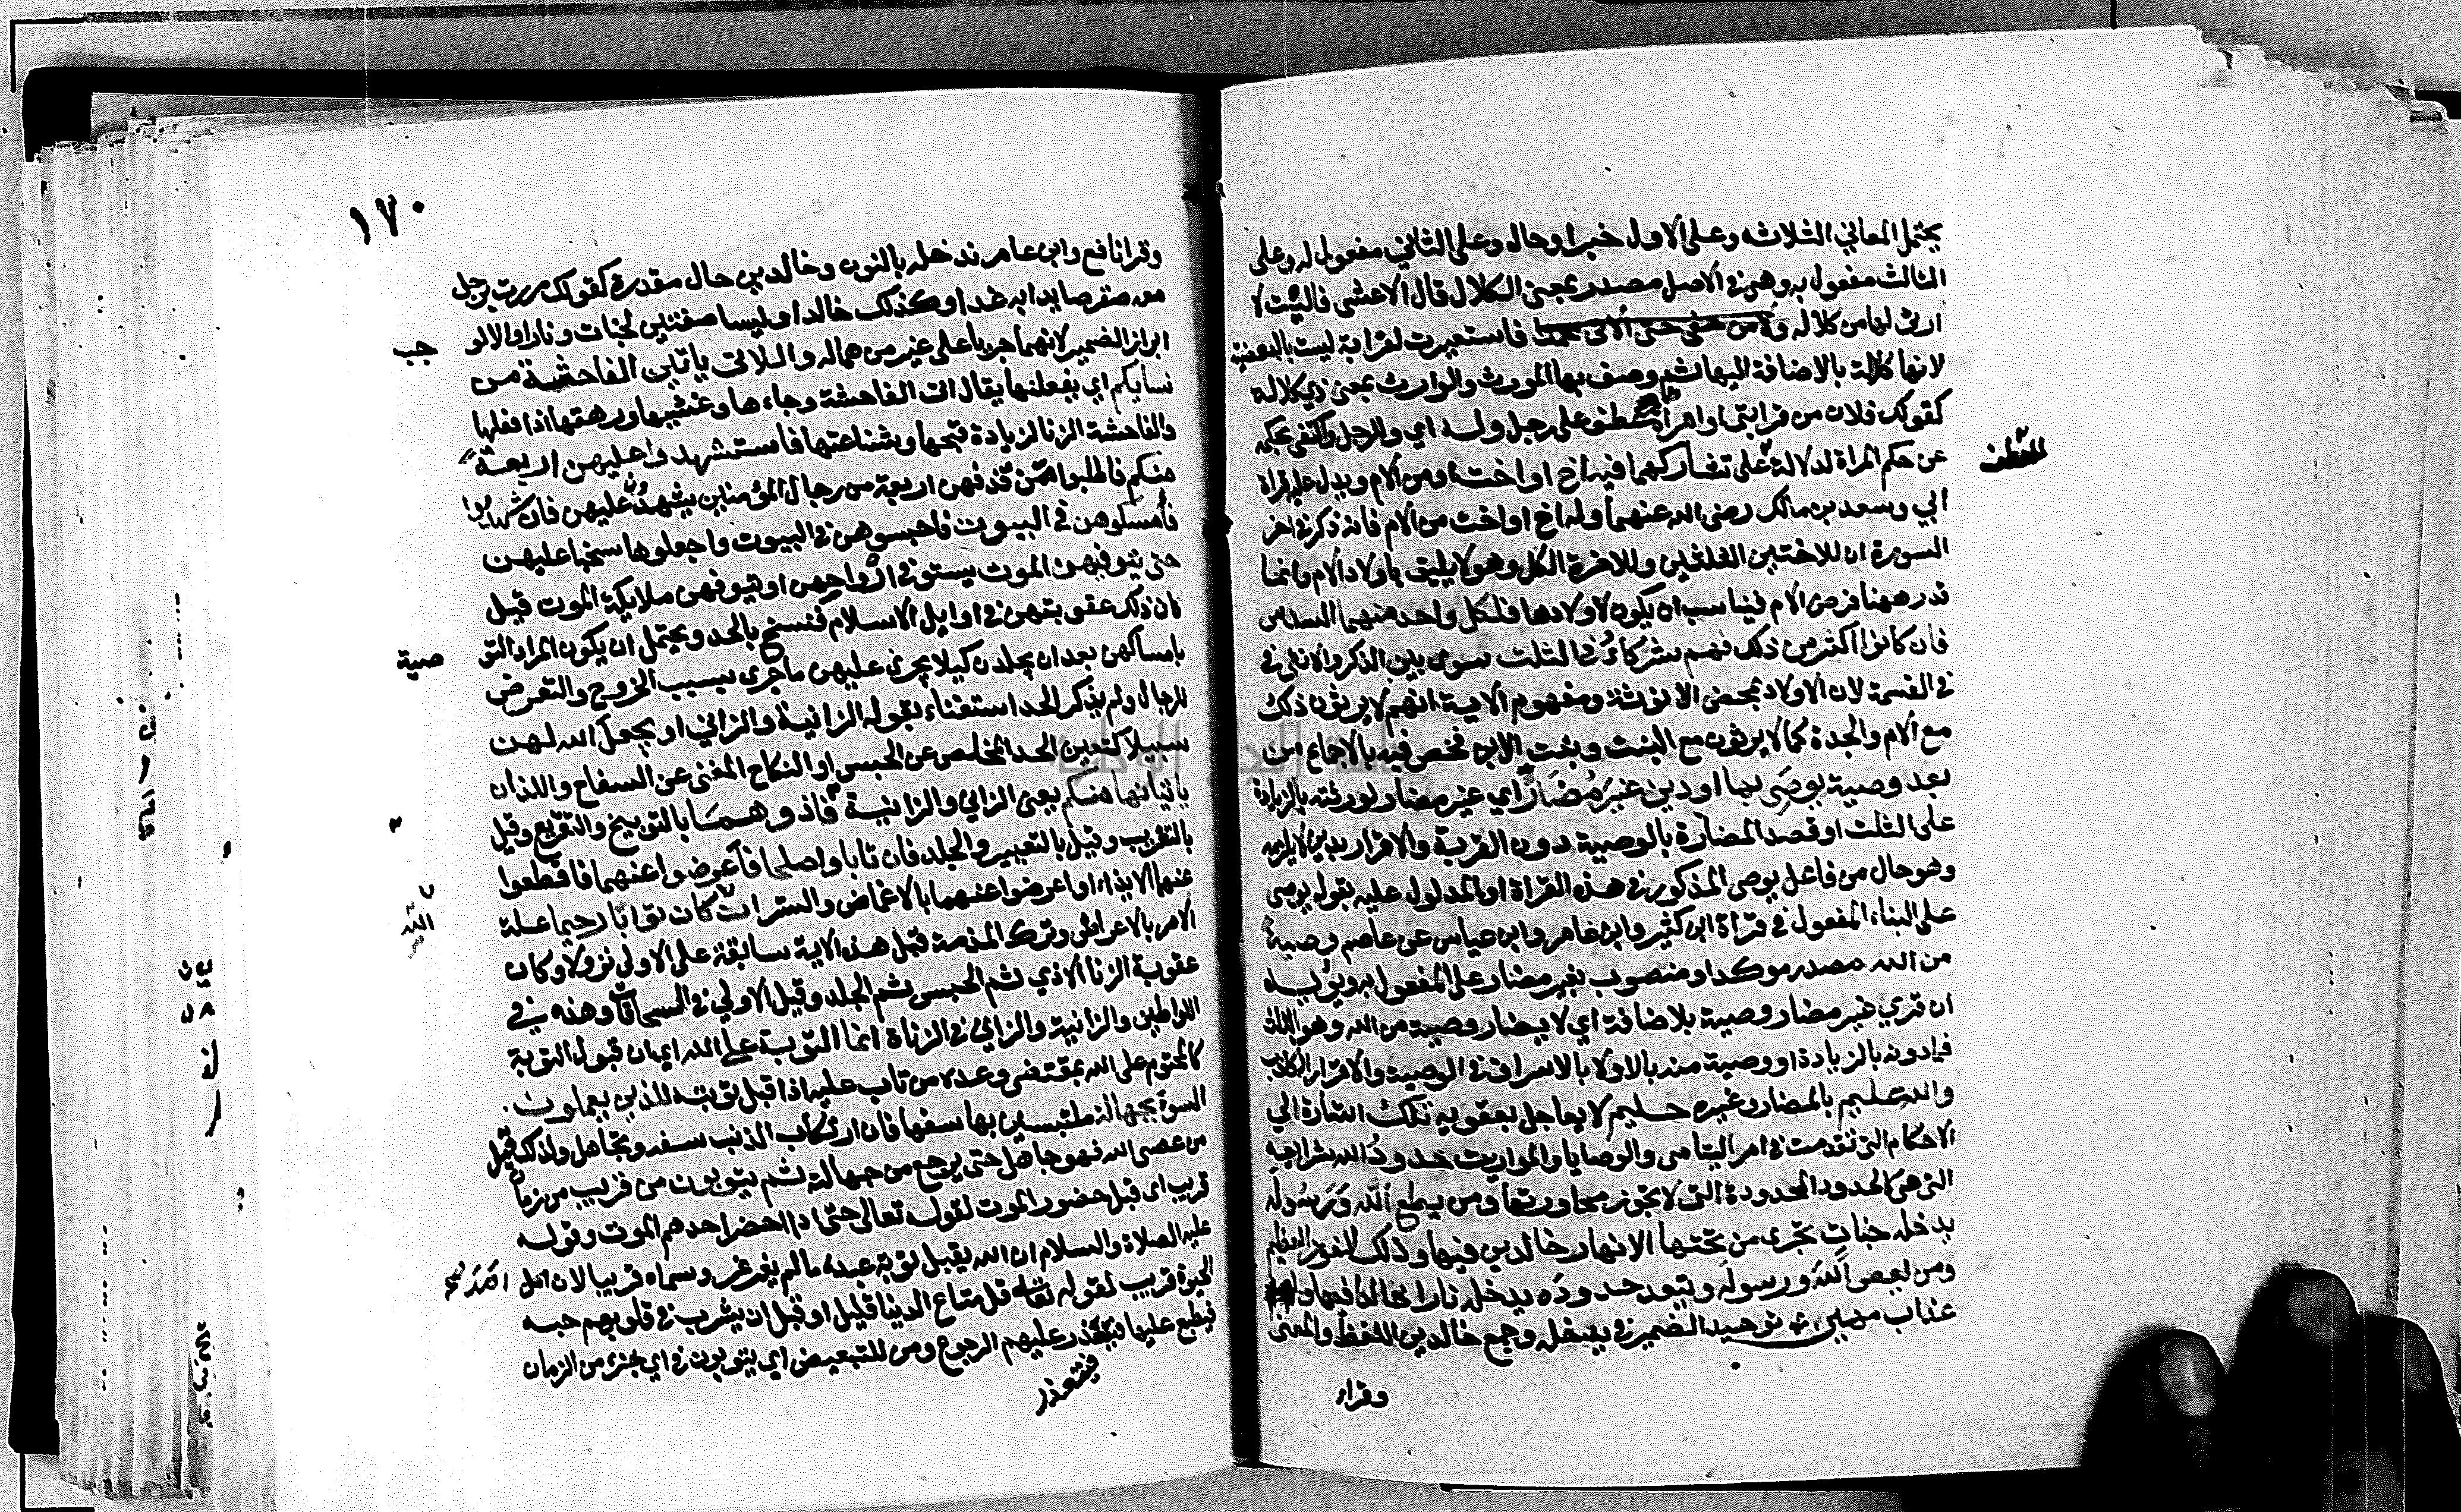 يحتمل المعاني الثلاثه وعلى الاول خبرا وحال وعلى الثاني مفعول له وعلى
الثالث مفعول به وهي في الاصل مصدر بمعنى الكلال قال الاعشى فاليت لا
ارثي لها من كلالة ولا من حفى حتى الاقي محمدا فاستعيرت لقرابة ليست بالبعضية
لانها كلالة بالاضافة اليها ثم وصف بها المورث والوارث بمعنى ذي كلالة
كقولك فلان من قرابتي او امرأة عطف على رجل وله اي وللرجل واكتفى بحكمه
عن حكم المراة لدلالة العطف على تشاركهما فيه اخ او اخت اي ومن الام ويدل عليه قراة
ابي وسعد بن مالك رضي الله عنهما وله اخ او اخت من الام فانه ذكر في اخر
السورة ان للاختين الثلثين وللاخوة الكل وهو لا يليق باولاد الام وانما
قدر ههنا فرض الام فيناسب ان يكون لاولادها فلكل واحد منهما السدس
فان كانوا اكثر من ذلك فهم شركاء في الثلث سوى بين الذكر والانثى في
في القسمة لان الاولاد بمحض الانوثة ومفهوم الاية انهم لا يرثون ذلك
مع الام والجدة كما لا يرثون مع البنت وبنت الابن فخص فيه بالاجماع من
بعد وصية يوصى بها او دين غير مضار اي غير مضار لورثته بالزيادة
على الثلث او قصد المضارة بالوصية دون القربة والاقرار بدين لا يلزمه
وهو حال من فاعل يوصي المذكور في هذه القراة او المدلول عليه بقوله يوصى
على البناء المفعول في قراة ابن كثير وابن عامر وابن عياس عن عاصم وصية
من الله مصدر موكد او منصوب بغير مضار على المفعول به ويؤيده
ان قري غير مضار وصية بلاضافة اي لا يضار وصية من الله وهو الثلث
فما دونه بالزيادة او وصية منه بالاولاد بالاسراف في الوصية والاقرار الكاذب
والله عليم بالمضار وغيره حليم لا يعاجل بعقوبه تلك اشارة الي
الاحكام التي تقدمت في امر اليتامى والوصايا والمواريث حدود الله شرايعه
التي هي كالحدود المحدودة التي لا يجوز مجاوزتها ومن يطع الله ورسوله
يدخله جنات تجري من تحتها الانهار خالدين فيها وذلك الفوز العظيم
ومن يعص الله ورسوله ويتعد حدوده يدخله نارا خالدا فيها وله
عذاب مهين توحيد الضمير في يدخله وجمع خالدين اللفظ والمعنى
وقراء
١٧٠
وقرا نافع وابن عامر ندخله بالنون وخالدين حال مقدرة كقولك مررت برجل
معه صقر صايدا به غدا وكذلك خالدا وليسا صفتين لجنات ونارا والا لو
جب
ابراز الضمير لانهما جريا على غير من هما له واللاتي ياتين الفاحشة من
نسايكم اي يفعلنها يقال اتى الفاحشة وجاءها وغشيها ورهقها اذا فعلها
والفاحشة الزنا لزيادة قبحها وشناعتها فاستشهدوا عليهن اربعة
منكم فاطلبوا ممن قذفهن اربعة من رجال المؤمنين يشهدون عليهن فان شهدوا
فأمسكوهن في البيوت فاحبسوهن في البيوت واجعلوها سجنا عليهن
حتى يتوفيهن الموت يستوفي ارواحهن او يتوفهن ملايكة الموت قيل
كان ذلك عقوبتهن في اوايل الاسلام فنسخ بالحد ويحتمل ان يكون المراد التو
صية
بامساكهن بعد ان يجلدن كيلا يجري عليهن ما جرى بسبب الخروج والتعرض
للرجال ولم يذكر الحد استغناء بقوله الزانية والزاني او يجعل الله لهن
سبيلا كتعيين الحد المخلص عن الحبس او النكاح المغني عن السفاح واللذان
ياتيانها منكم يعني الزاني والزانية فاذوهما بالتوبيخ والتقريع وقيل
بالتغريب وقيل بالتعيير والجلد فان تابا واصلحا فأعرضوا عنهما فاقطعوا
عنهما الايذاء او اعرضوا عنهما بالاغماض والستر ان الله كان توابا رحيما علة
الامر بالاعراض وترك المذمة قيل هذه الاية سابقة على الاولى نزولا وكان
عقوبة الزنا الاذي ثم الحبس ثم الجلد وقيل الاولي في السحاقات وهذه في
اللواطين والزانية والزاني في الزناة انما التوبة على الله اي ان قبول التوبة
كالمحتوم على الله بمقتضى وعده من تاب عليه اذا قبل توبته للذين يعملون
السوء بجهالة ملتبسين بها سفها فان ارتكاب الذنب سفه وتجاهل ولذلك قيل
من عصى الله فهو جاهل حتى يرجع من جهالته ثم يتوبون من قريب من زمان
قريب اى قبل حضور الموت لقوله تعالى حتى اذا حضر احدهم الموت وقوله
عليه الصلاة والسلام ان الله يقبل توبة عبده ما لم يغرغر وسماه قريبا لان امد
الحيوة قريب لقوله تعالى قل متاع الدنيا قليل او قبل ان يشرب في قلوبهم حبه
فيطبع عليها فيتعذر عليهم الرجوع ومن للتبعيض اي يتوبون في اي جزء من الزمان
فيتعذر